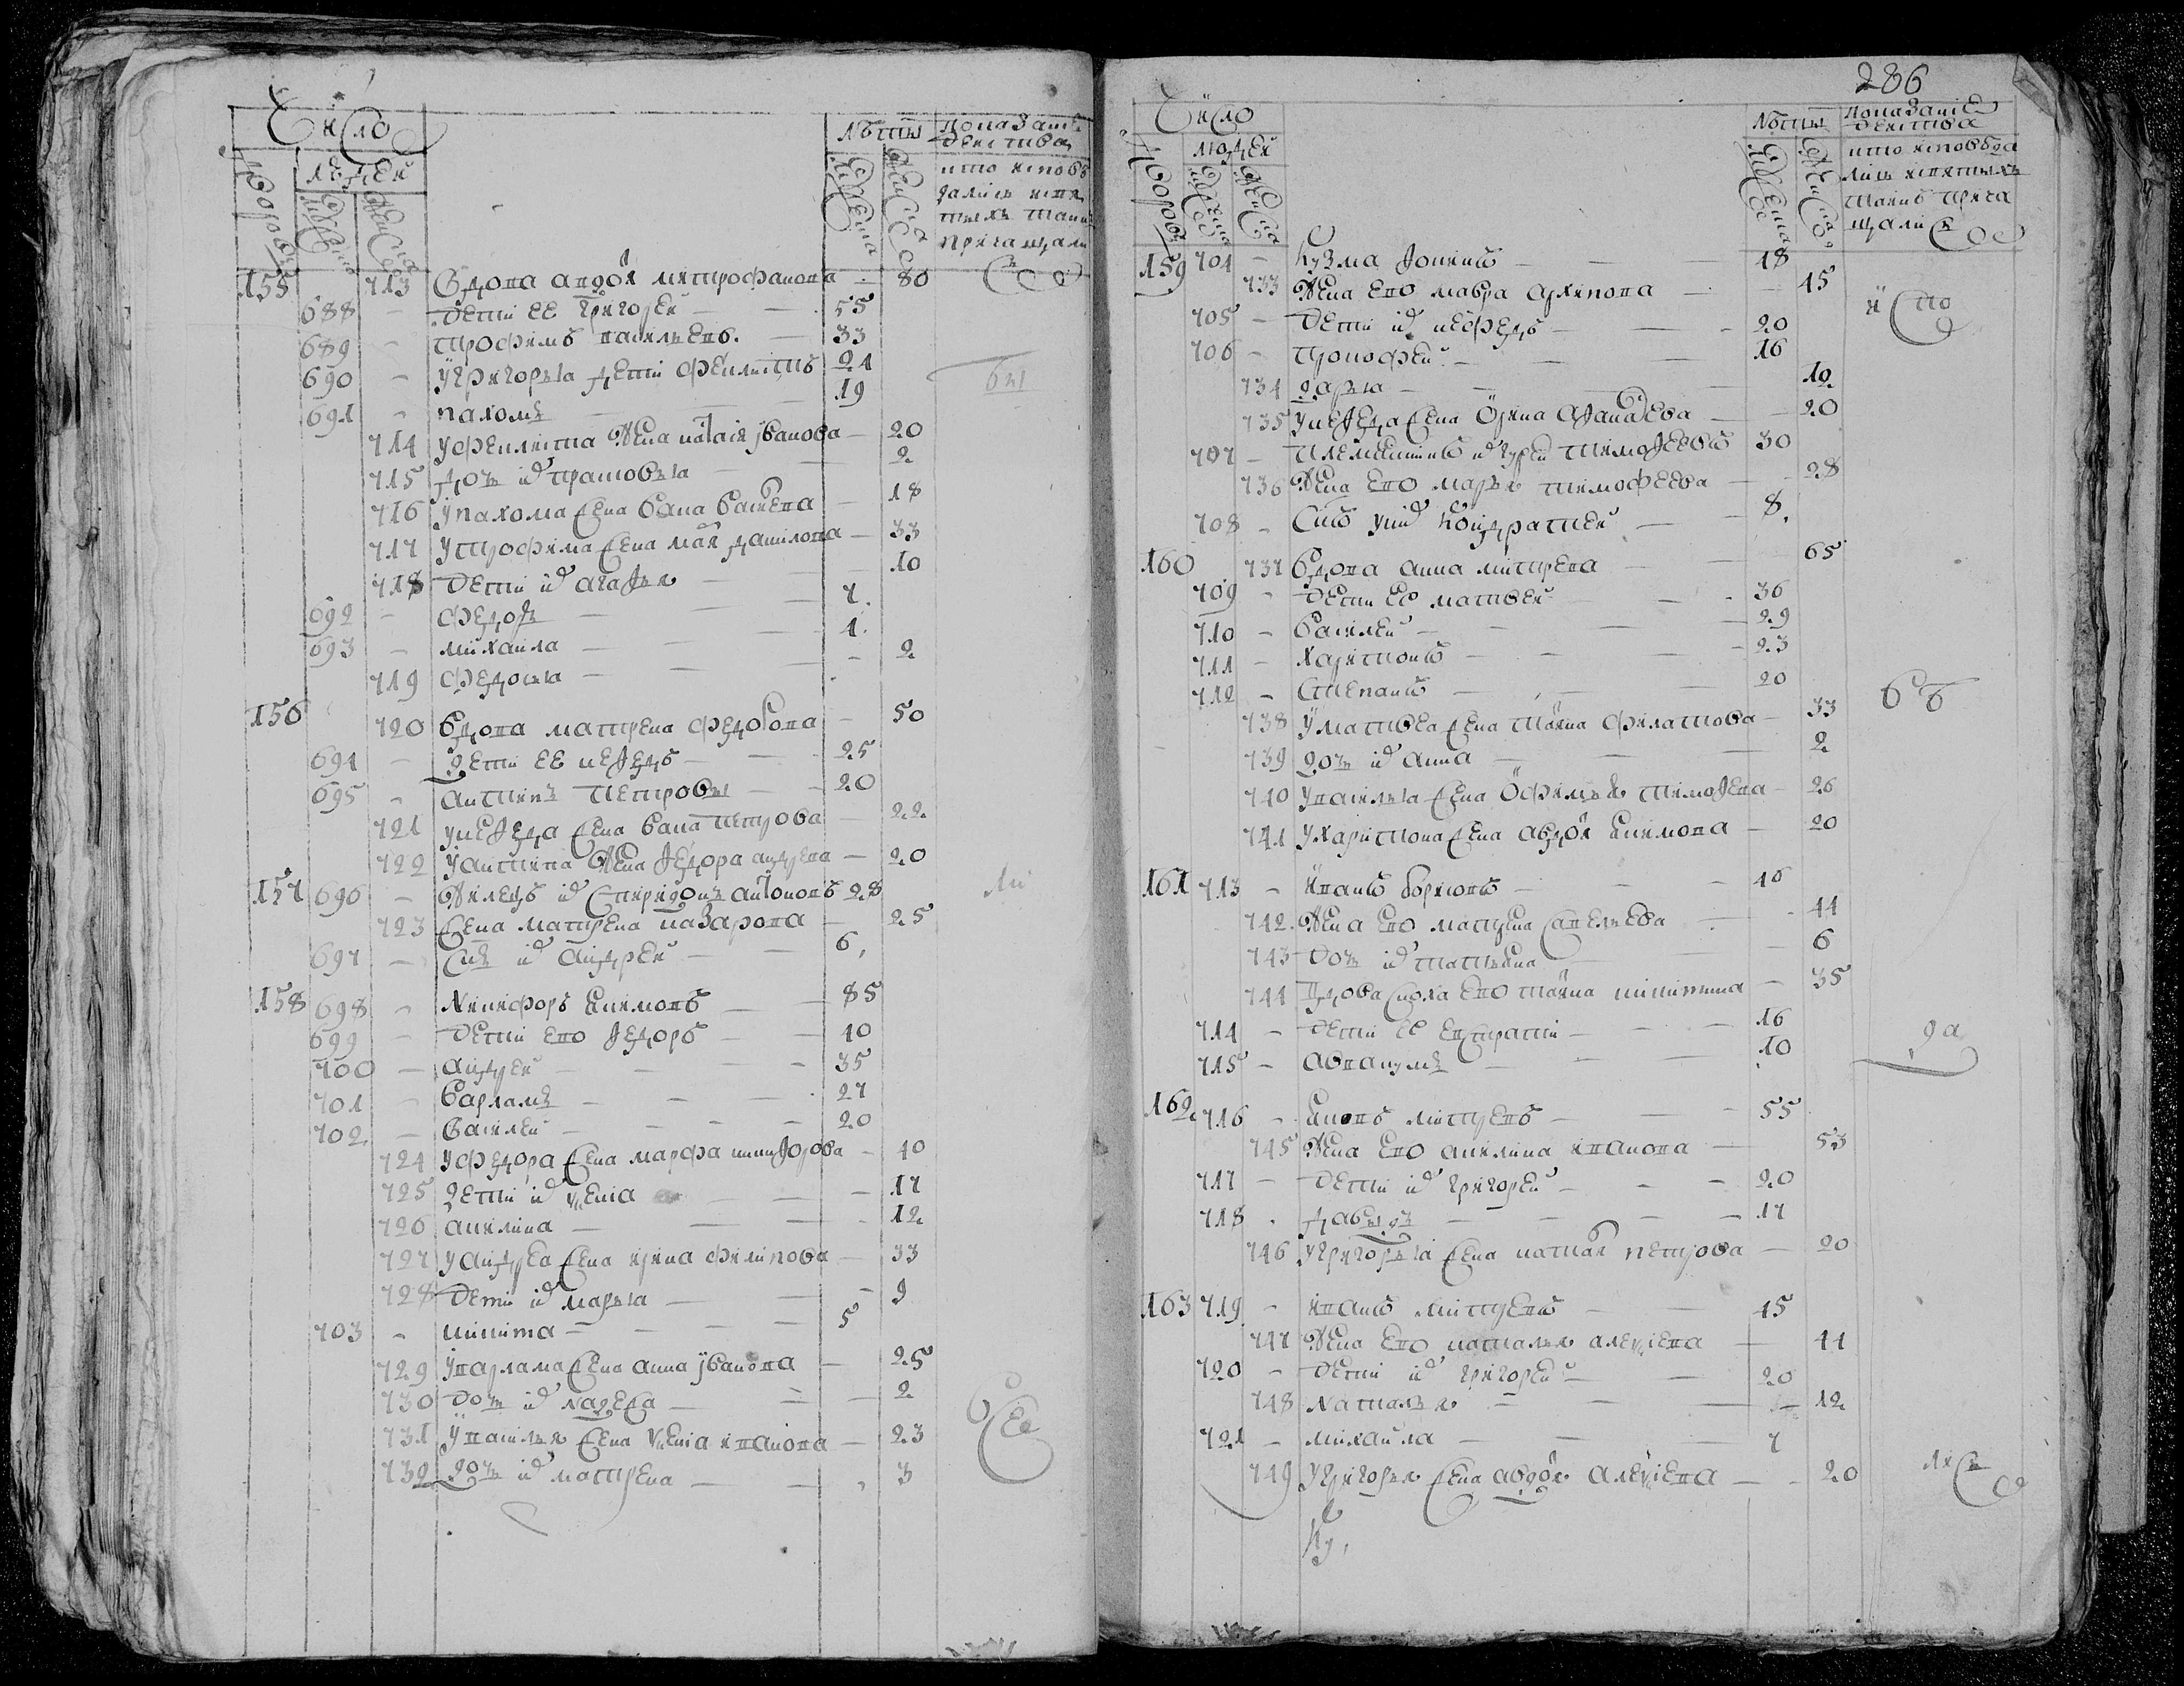 Число
Дворовъ
людей
мужеска
женска
Лѣты
мужеска
женска
показаніе
действа
кто исповѣ
дались и свя
тыхъ таинъ
причащали
сь
155 713 Вдова авдоя митрофанова 80
688 дети ее григорей 55
689 трофимъ васильевъ 33
690 у григорья дети феклистъ 21
691 пахомъ 19
714 у феклиста жена наталя иванова 20
715 дочь их прасковья 2
716 у пахома жена васа васильева 18
717 у трофима жена маря данилова 33
718 дети их агафья 10
692 федоръ 7
693 михаила 4
719 федосья 2
156 720 вдова матрена федорова 50
694 дети ее нефедъ 25
695 антипъ петровы 20
721 у нефеда жена васа петрова 22
722 у антипа жена федора андреева 20
157 696 жилецъ их спиридонъ антоновъ 28
723 жена матрена назарова 25
697 сынъ их андрей 6
158 698 никифоръ екимовъ 85
699 дети ево федоръ 40
700 андрей 35
701 варламъ 27
702 василей 20
724 у федора жена марфа никифорова 40
725 дети их ксенія 17
726 акилина 12
727 у андрея жена ирина филипова 33
728 дети их марья 9
703 никита 5
729 у варлама жена анна иванова 25
730 дочь их 2
731 у василья жена ксенія иванова 23
732 дочь их матрена 3
бы
ли
все
286
Число
Дворовъ
людей
мужеска
женска
Лѣты
мужеска
женска
показаніе
действа
кто исповѣда
лись и святыхъ
таинъ прича
щались
159 704 кузма фокинъ 48
733 жена ево мавра архипова 45
705 дети их нефедъ 20
706 прокофей 16
734 дарья 12
735 у нефеда жена ирина афанасева 20
707 племянникъ их гурей тимофеевъ 30
736 жена ево марья тимофеева 28
708 сынъ у них кондратей 8
160 737 вдова анна митрева 65
709 дети ее матвей 36
710 василей 29
711 харитонъ 23
712 степанъ 20
738 у матвея жена татяна филатова 33
739 дочь их анна 2
740 у василья жена офимья тимофева 26
741 у харитона жена авдоя екимова 20
161 713 иванъ борисовъ 46
742 жена ево матрена савельева 44
743 дочь их татьяна 6
744 вдова сноха ево татяна никитина 35
714 дети ее евстратий 16
715 авваکумъ 10
162 716 екимъ митревъ 55
745 жена ево акилина иванова 53
717 дети их григорей 20
718 давыдъ 17
746 у григорья жена наталя петрова 20
163 719 иванъ митревъ 45
747 жена ево наталья алексіева 44
720 дети их григорей 20
748 наталья 12
721 михаила 7
749 у григорья жена авдоя алексіева 20
испо
вѣ
да
лись
ку